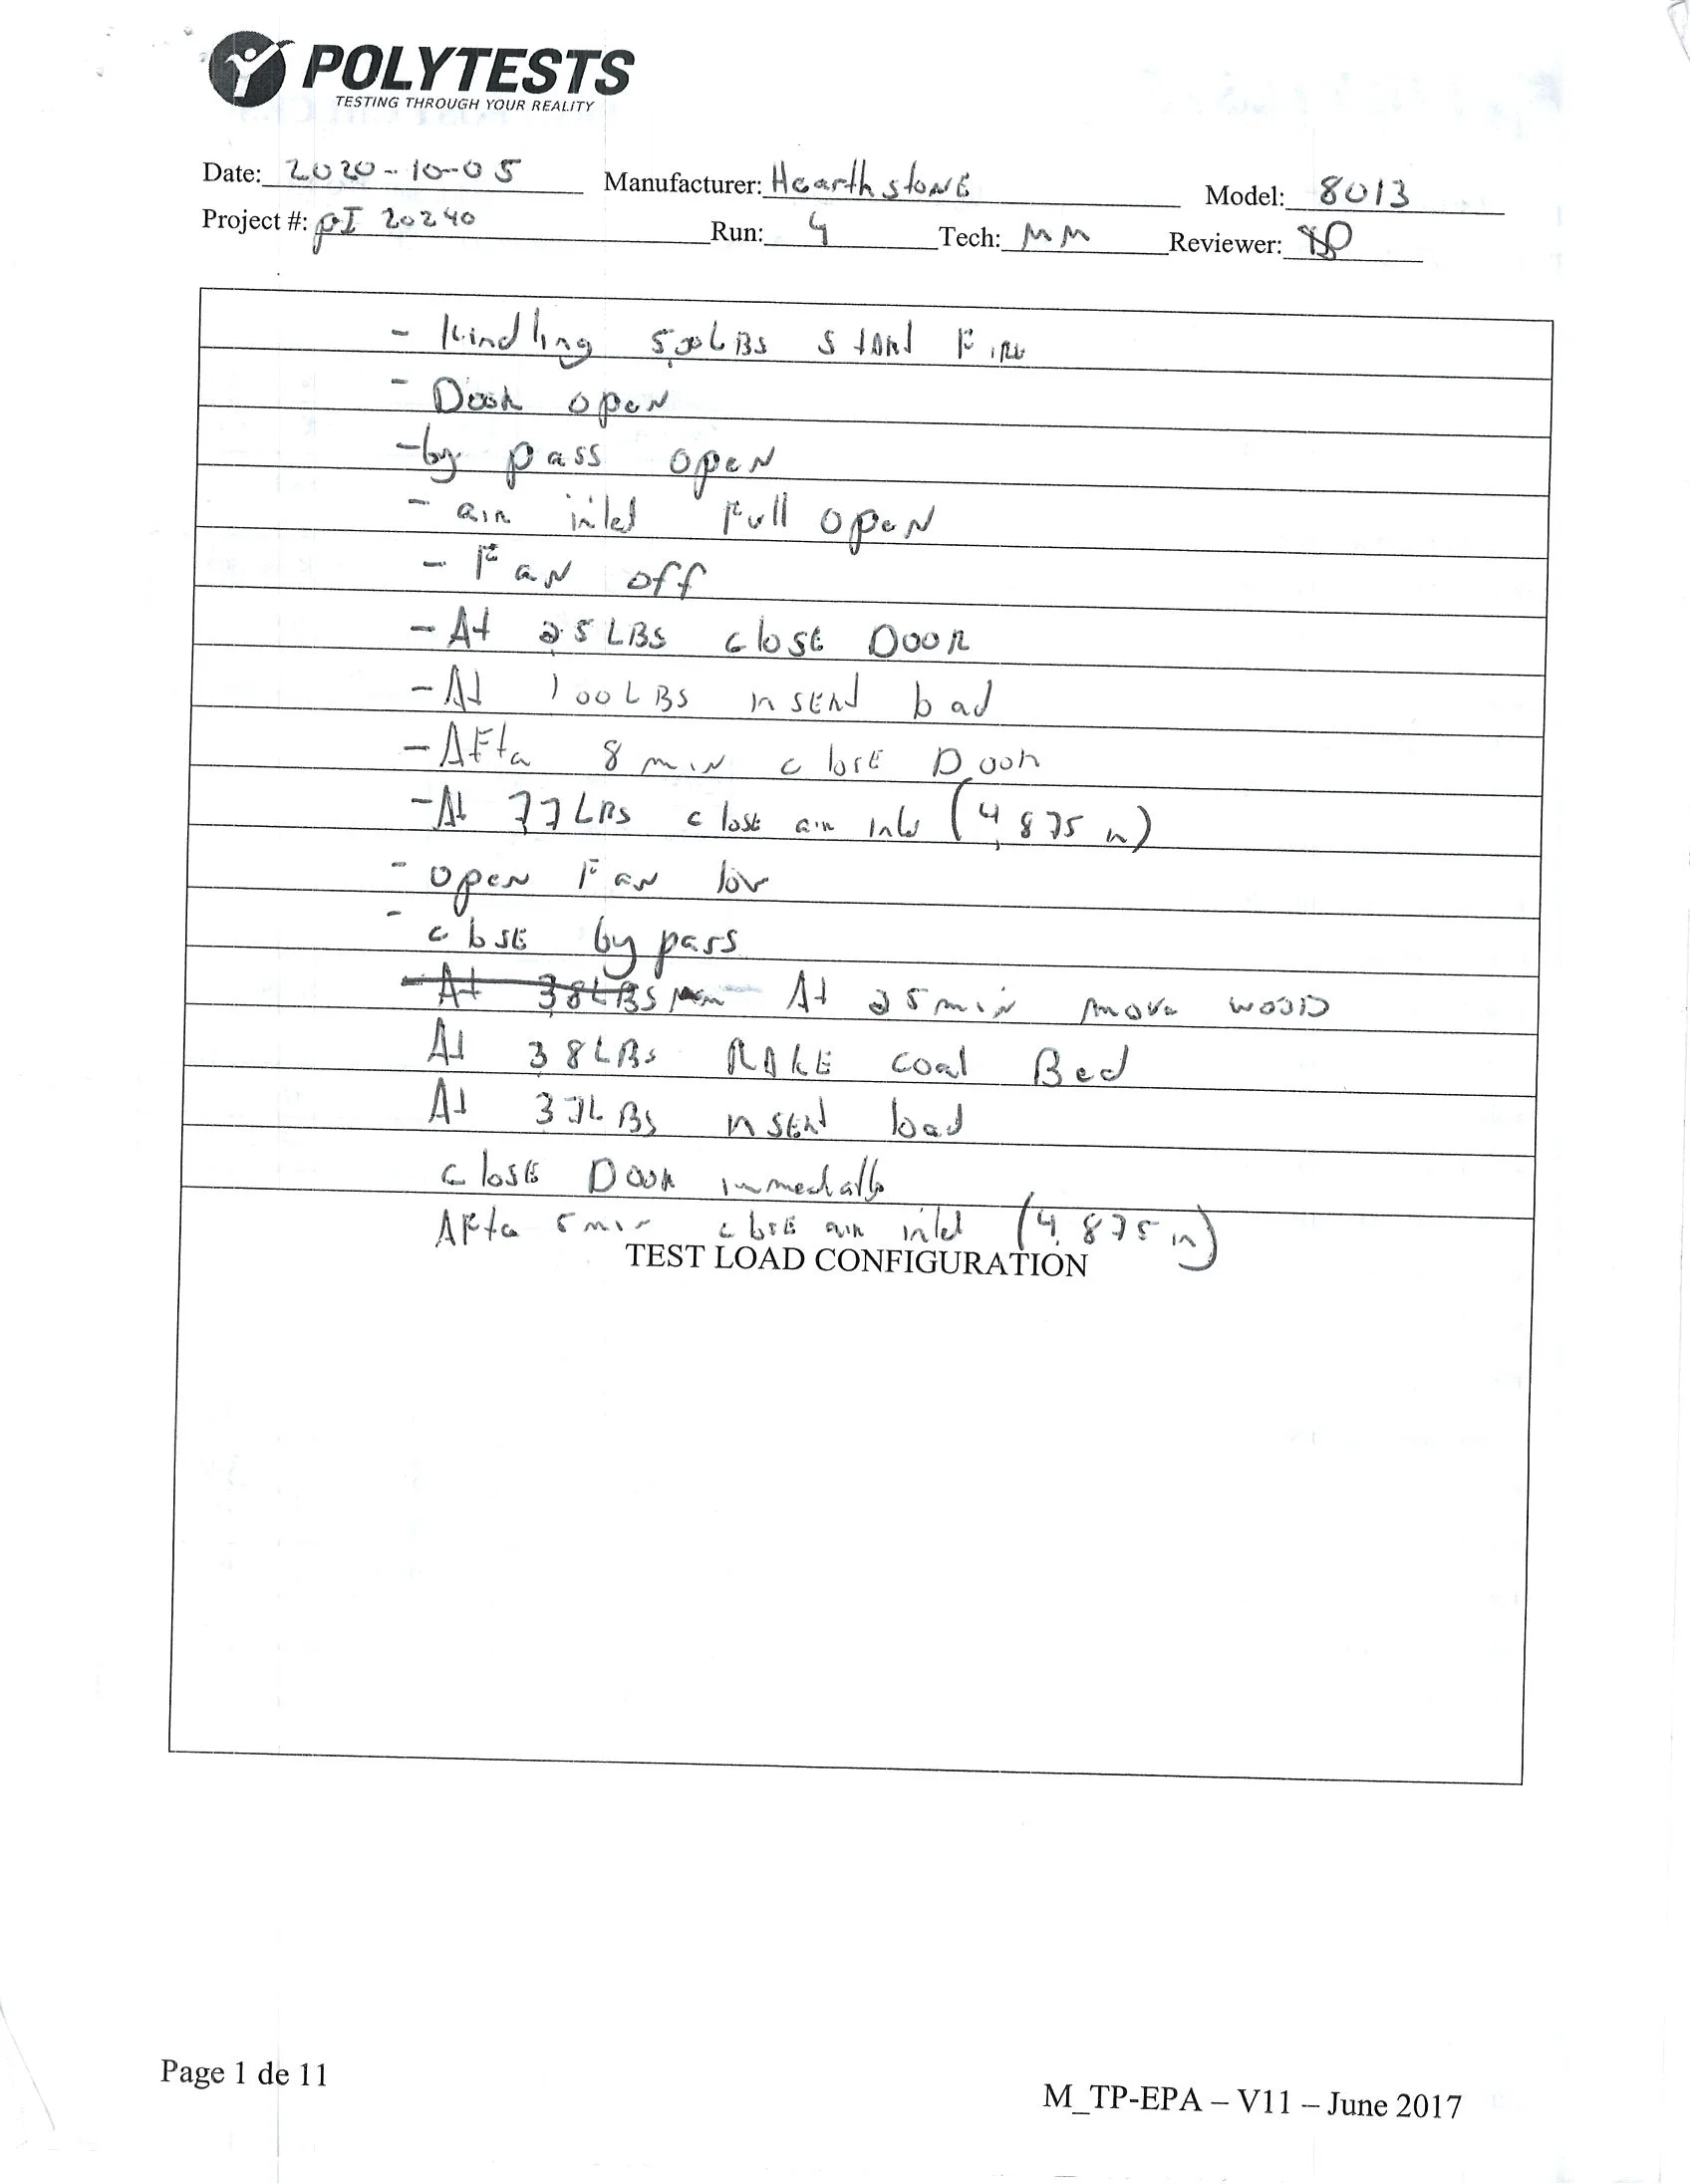 POLYTESTS
TESTING THROUGH YOUR REALITY
Date: 2020-10-05 Manufacturer: HearthstoNE Model: 8013
Project #: PI 20240 Run: 4 Tech: MM Reviewer:
- Kindling 5,00LBS START FIRE
- DooR opeN
- by pass opeN
- aiR inlet Full opeN
- FaN off
- At 2,5LBS closE DOOR
- At 1,00LBS insERt
- AFter 8 miN closE DooR
- At 7,7LBS closE air inlet (4,875 in)
- opeN FaN low
- closE by pass
- At 3,8LBS At 25 miN move wooD
At 3,8LBS RAKE coal Bed
At 3,7LBS insERt load
closE DooR immediatly
AFter 5 min closE air inlet (4,875 in)
TEST LOAD CONFIGURATION
Page 1 de 11
M_TP-EPA – V11 – June 2017